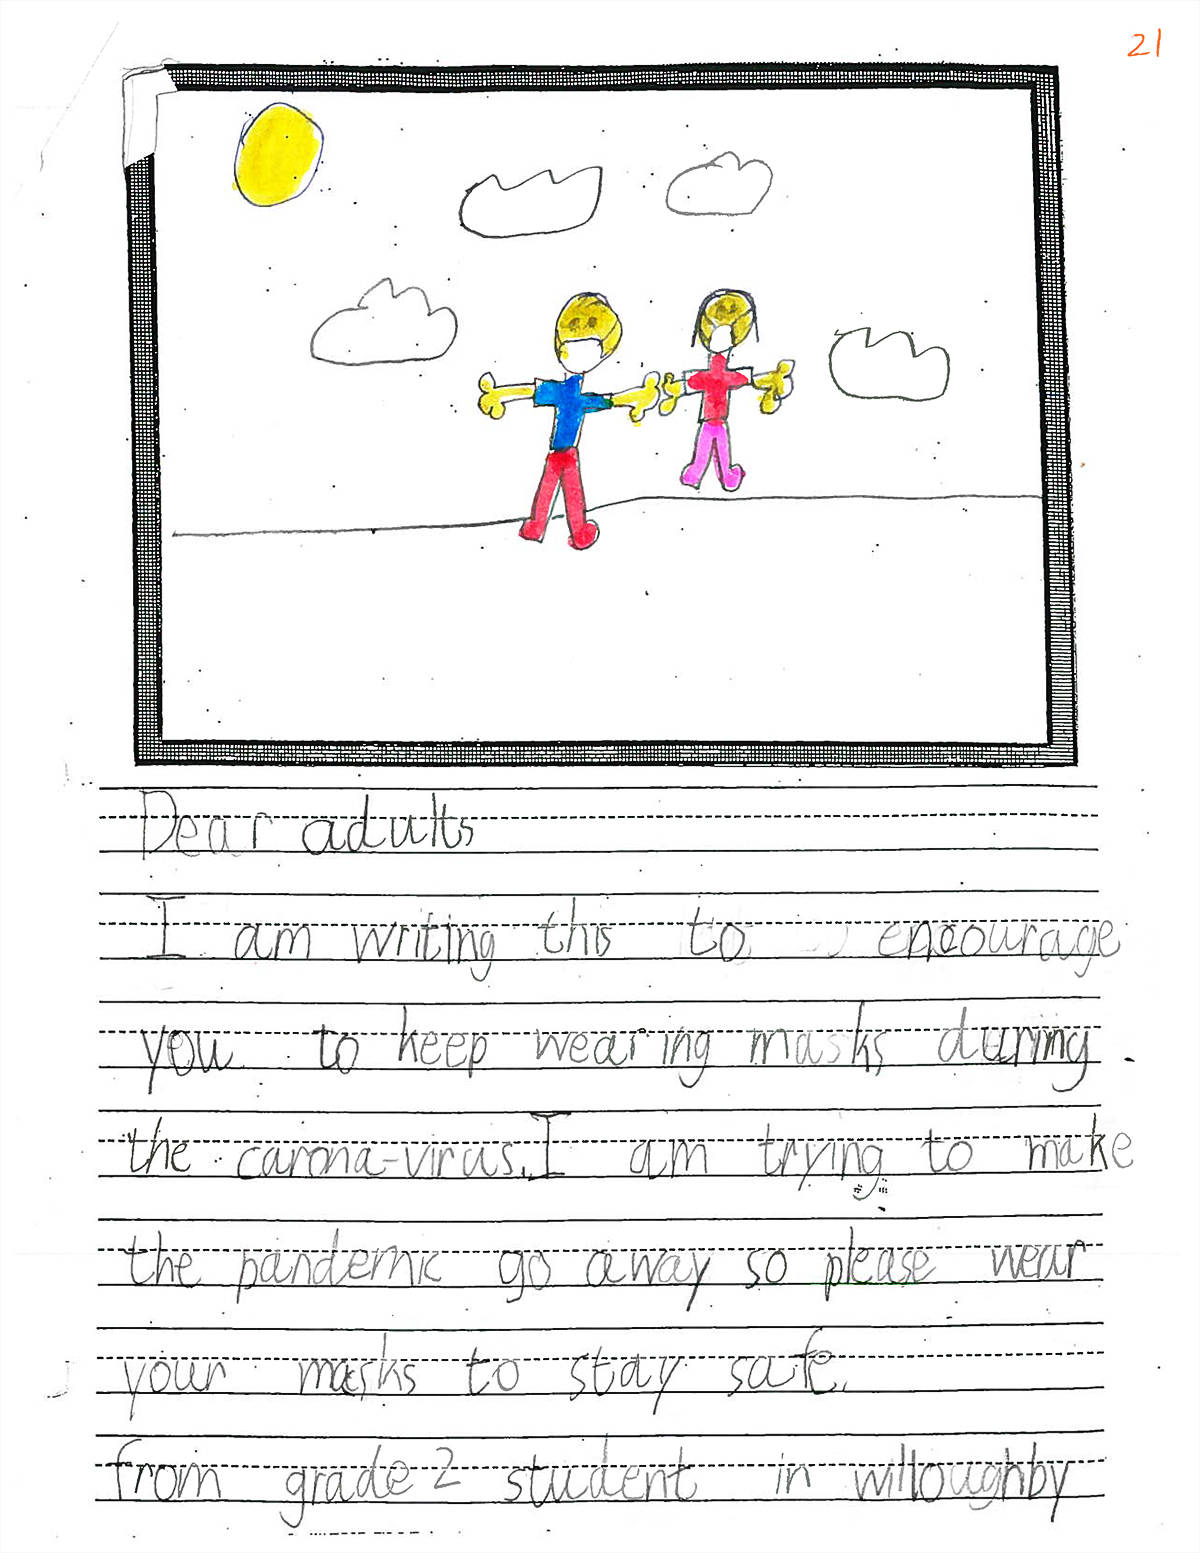 21
Dear adults
I am writing this to encourage
you to keep wearing masks during
the carona-virus. I am trying to make
the pandemic go away so please wear
your masks to stay safe.
from grade 2 student in willoughby